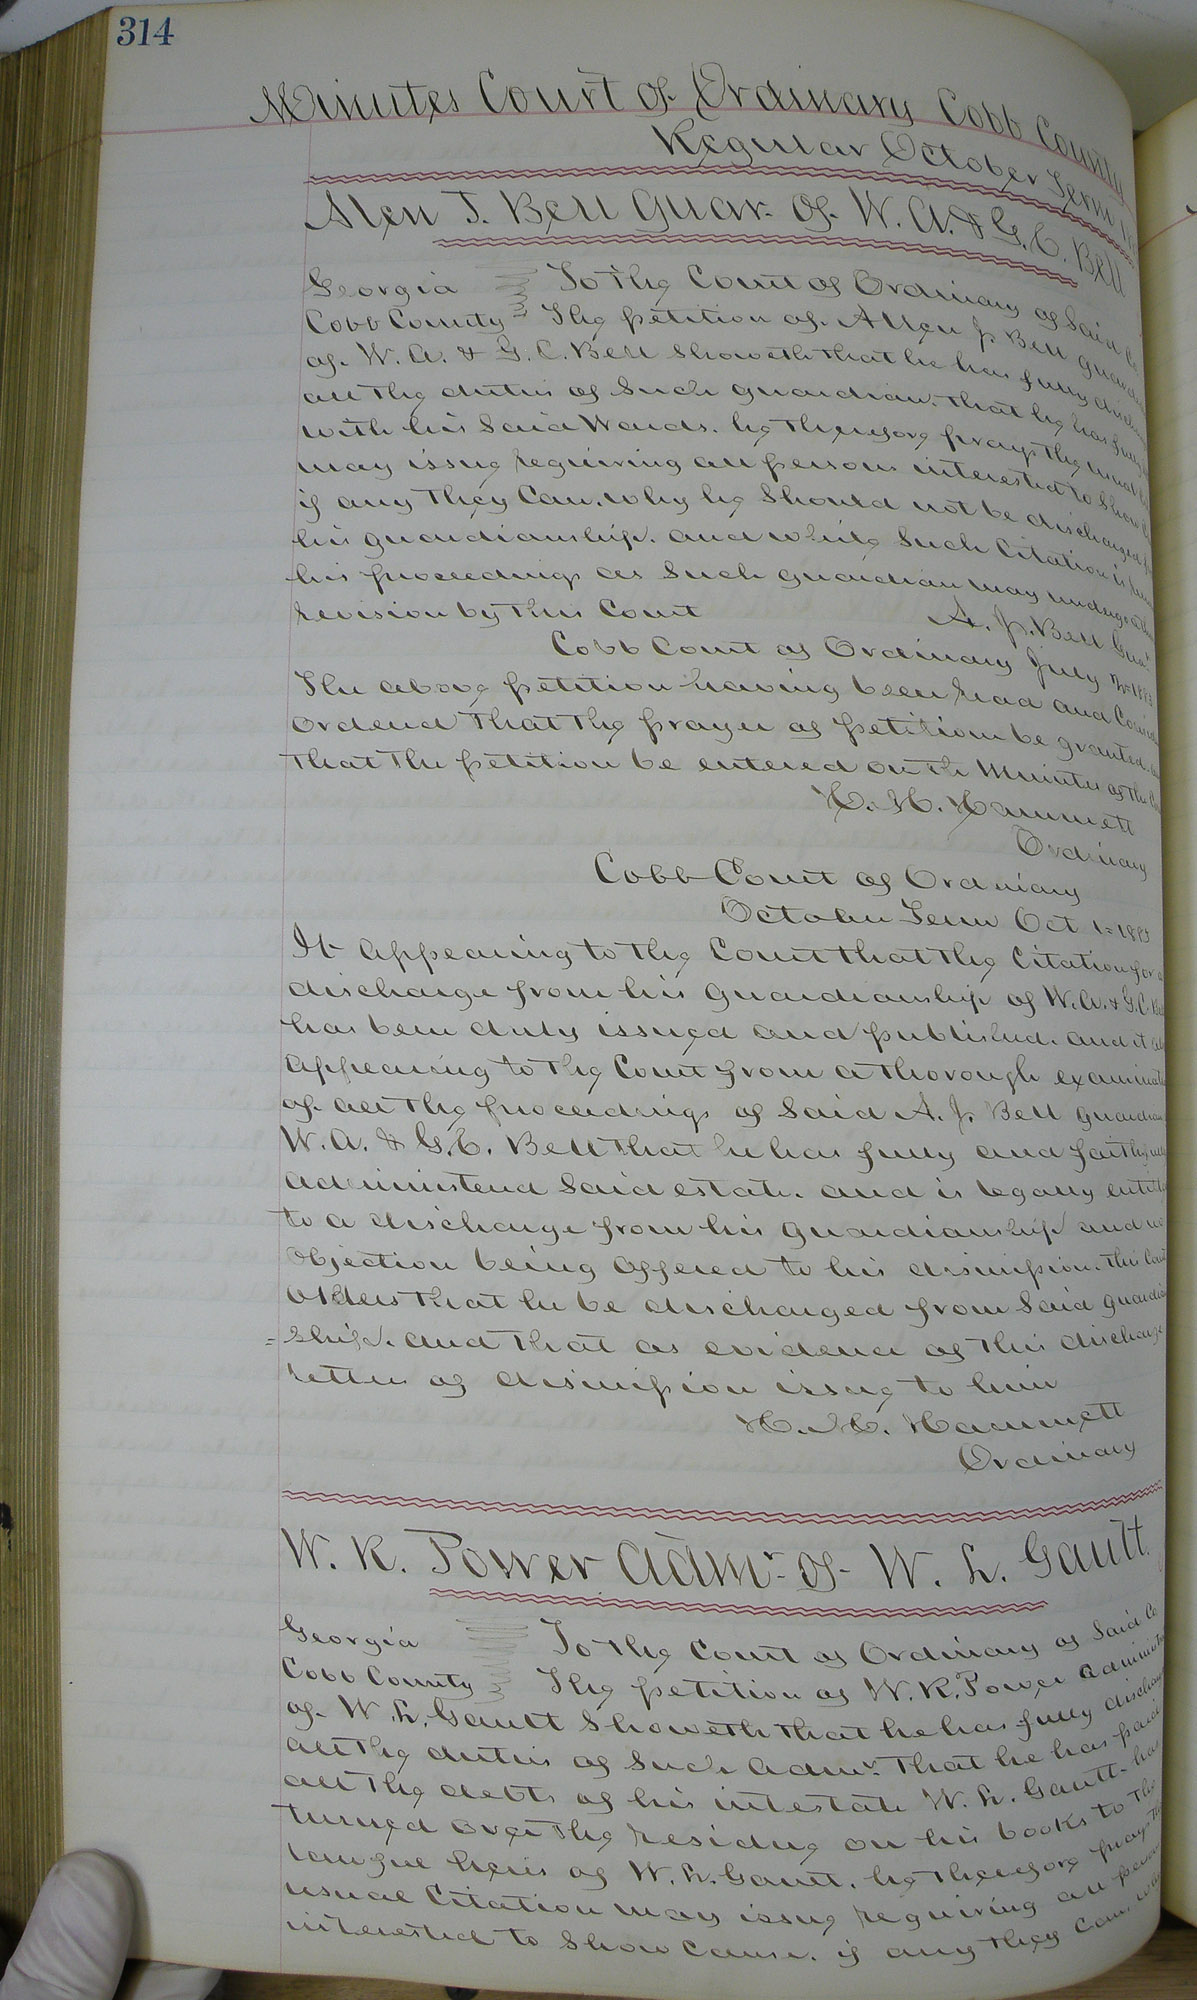 314
Minutes Court of Ordinary Cobb County
Regular October Term
Allen J. Bell Guar. of W. A. & G. C. Bell
Georgia To the Court of Ordinary of Said Co
Cobb County The petition of Allen J Bell guardian
of W. A. & G. C. Bell Showeth that he has fully
all the duties of Such guardian. that he has fully
with his Said Wards. he therefore prays the usual
may issue requiring all persons interested to Show
if any they Can. why he Should not be discharged
his guardianship. and while Such Citation is
his proceedings as Such guardian may undergo
revision by this Court A. J. Bell Guar
Cobb Court of Ordinary July
The above petition having been read and
Orderd that the prayer of petition be granted.
that the petition be entered on the Minutes of the
H. M. Hammett
Ordinary
Cobb Court of Ordinary
October Term Oct 1st
It appearing to the Court that the Citation for
discharge from his Guardianship of W. A. & G. C.
has been duly issued and published. and it
appearing to the Court from a thorough
of all the proceedings of Said A. J. Bell guardian
W. A. & G. C. Bell that he has fully and faithfully
administerd Said estate. and is legally
to a discharge from his Guardianship and no
Objection being offered to his dismission. this Court
orders that he be discharged from Said
=ship. and that as evidence of this discharge
letters of dismission issue to him
H. M. Hammett
Ordinary
W. R. Power Admr. of W. L. Gautt.
Georgia To the Court of Ordinary of Said Co
Cobb County The petition of W. R. Power
of W. L. Gautt Showeth that he has fully
all the duties of Such Admr. that he has paid
all the debts of his intestate W. L. Gautt. has
turned over the residue on his books to the
lawful heirs of W. L. Gautt. he therefore prays the
usual Citation may issue requiring all
interested to Show Cause. if any they Can.